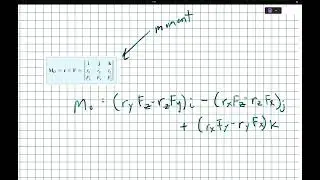 moment
M₀ = r × F = | i j k |
| rₓ rᵧ r_z |
| Fₓ Fᵧ F_z |
M₀ = (rᵧ F_z - r_z Fᵧ)i - (rₓF_z - r_z Fₓ)j
+ (rₓFᵧ - rᵧFₓ)k